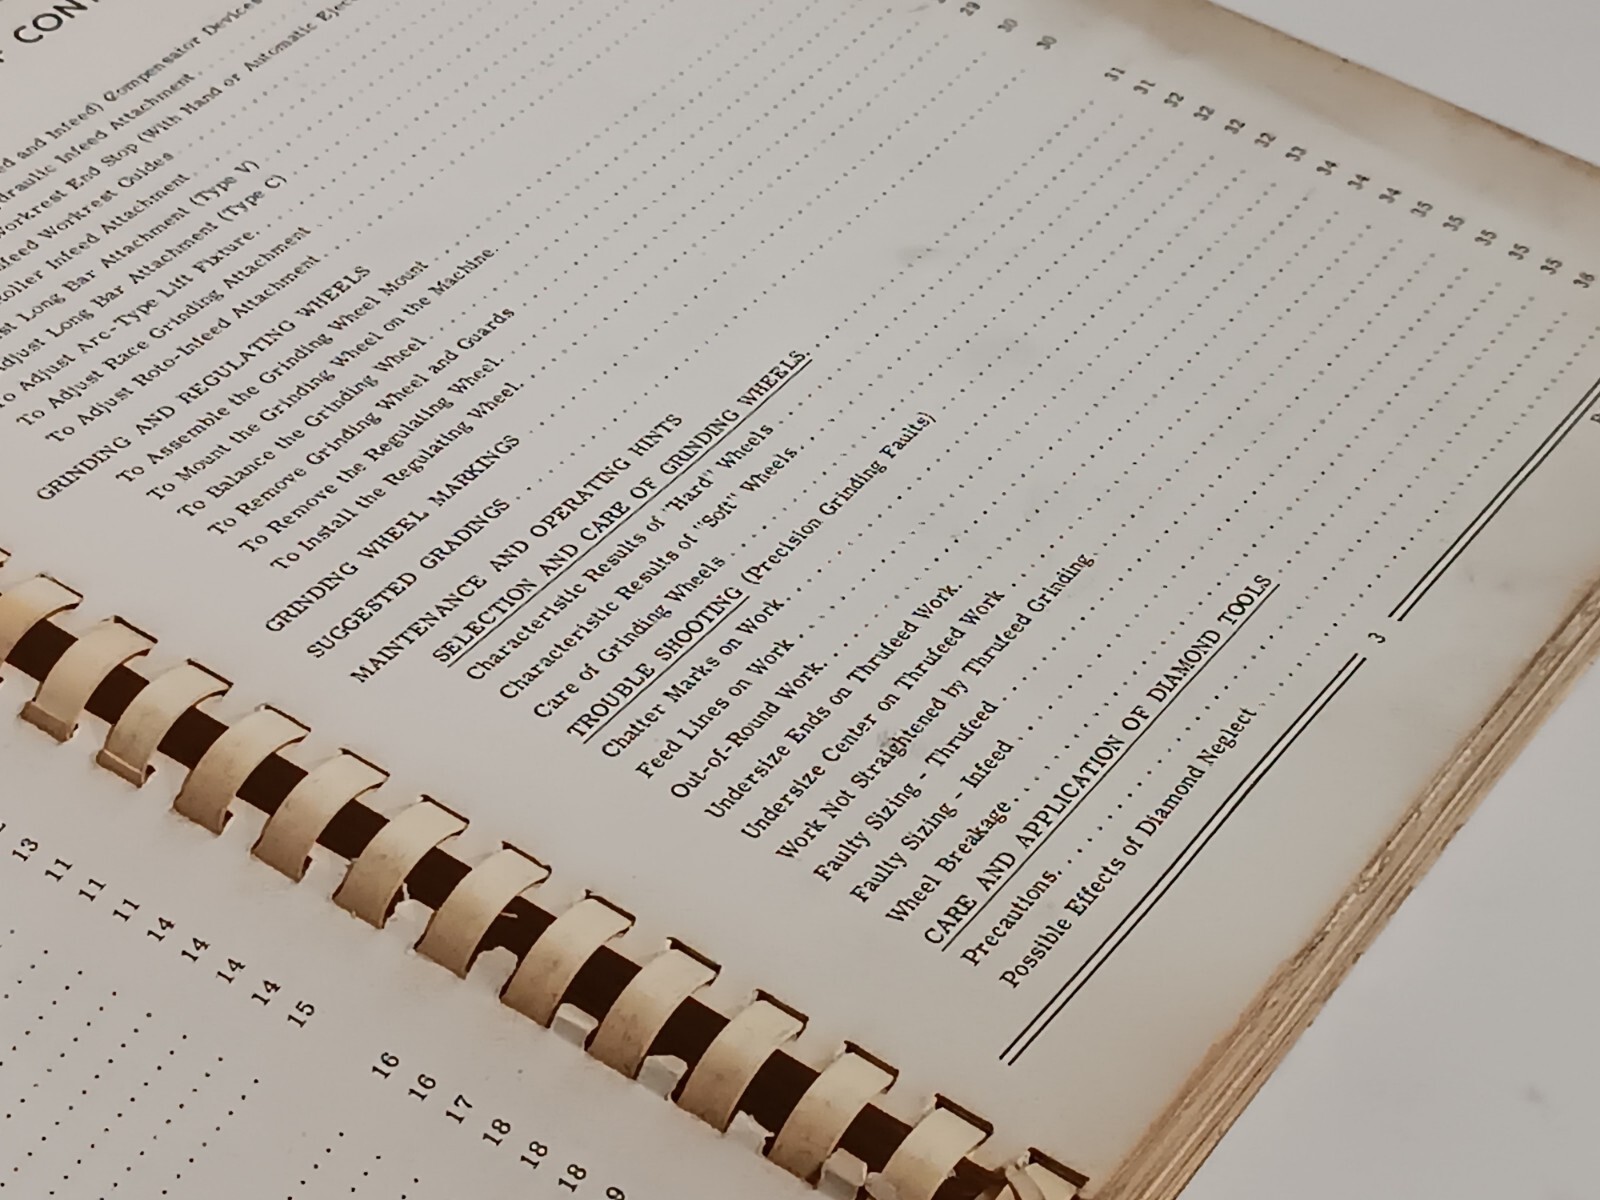 CONT
ed and Infeed) (Compensator Devices
draulic Infeed Attachment
Workrest End Stop (With Hand or Automatic Ejec
feed Workrest Guides
oller Infeed Attachment
st Long Bar Attachment (Type V)
djust Long Bar Attachment (Type C)
To Adjust Arc-Type Lift Fixture
To Adjust Race Grinding Attachment
To Adjust Roto-Infeed Attachment
GRINDING AND REGULATING WHEELS
To Assemble the Grinding Wheel Mount
To Mount the Grinding Wheel on the Machine
To Balance the Grinding Wheel
To Remove Grinding Wheel and Guards
To Remove the Regulating Wheel
To Install the Regulating Wheel
GRINDING WHEEL MARKINGS
SUGGESTED GRADINGS
MAINTENANCE AND OPERATING HINTS
SELECTION AND CARE OF GRINDING WHEELS
Characteristic Results of "Hard" Wheels
Characteristic Results of "Soft" Wheels
Care of Grinding Wheels
TROUBLE SHOOTING (Precision Grinding Faults)
Chatter Marks on Work
Feed Lines on Work
Out-of-Round Work
Undersize Ends on Thrufeed Work
Undersize Center on Thrufeed Work
Work Not Straightened by Thrufeed Grinding
Faulty Sizing - Thrufeed
Faulty Sizing - Infeed
Wheel Breakage
CARE AND APPLICATION OF DIAMOND TOOLS
Precautions
Possible Effects of Diamond Neglect
29
30
30
31
31
32
32
32
32
33
34
34
34
35
35
35
35
35
36
3
13
11
11
11
14
14
14
14
15
16
16
17
18
18
18
9